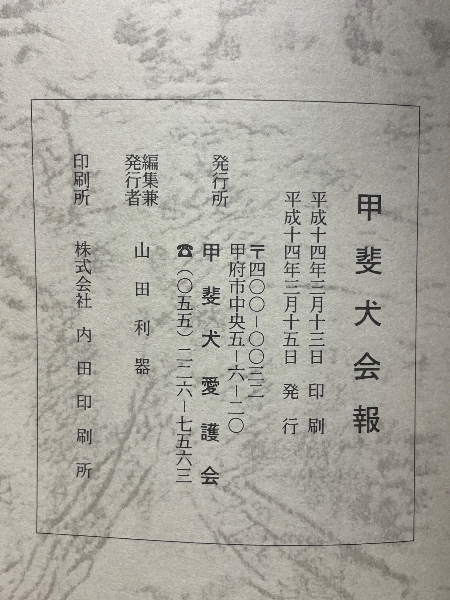 甲斐犬会報
平成十四年三月十三日 印刷
平成十四年三月十五日 発行
〒四〇〇－〇〇三二
甲府市中央五－六－二〇
発行所 甲斐犬愛護会
☎（〇五五）二二六－七五六三
編集兼
発行者 山田利器
印刷所 株式会社 内田印刷所